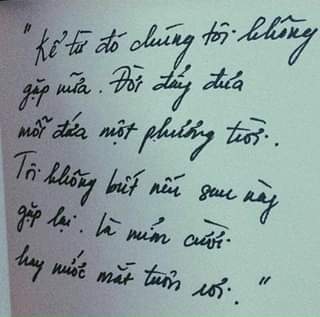 "Kể từ đó chúng tôi không
gặp nữa. Đời đẩy đưa
mỗi đứa một phương trời.
Tôi không biết nếu sau này
gặp lại. Là mỉm cười
hay nước mắt tuôn rơi."